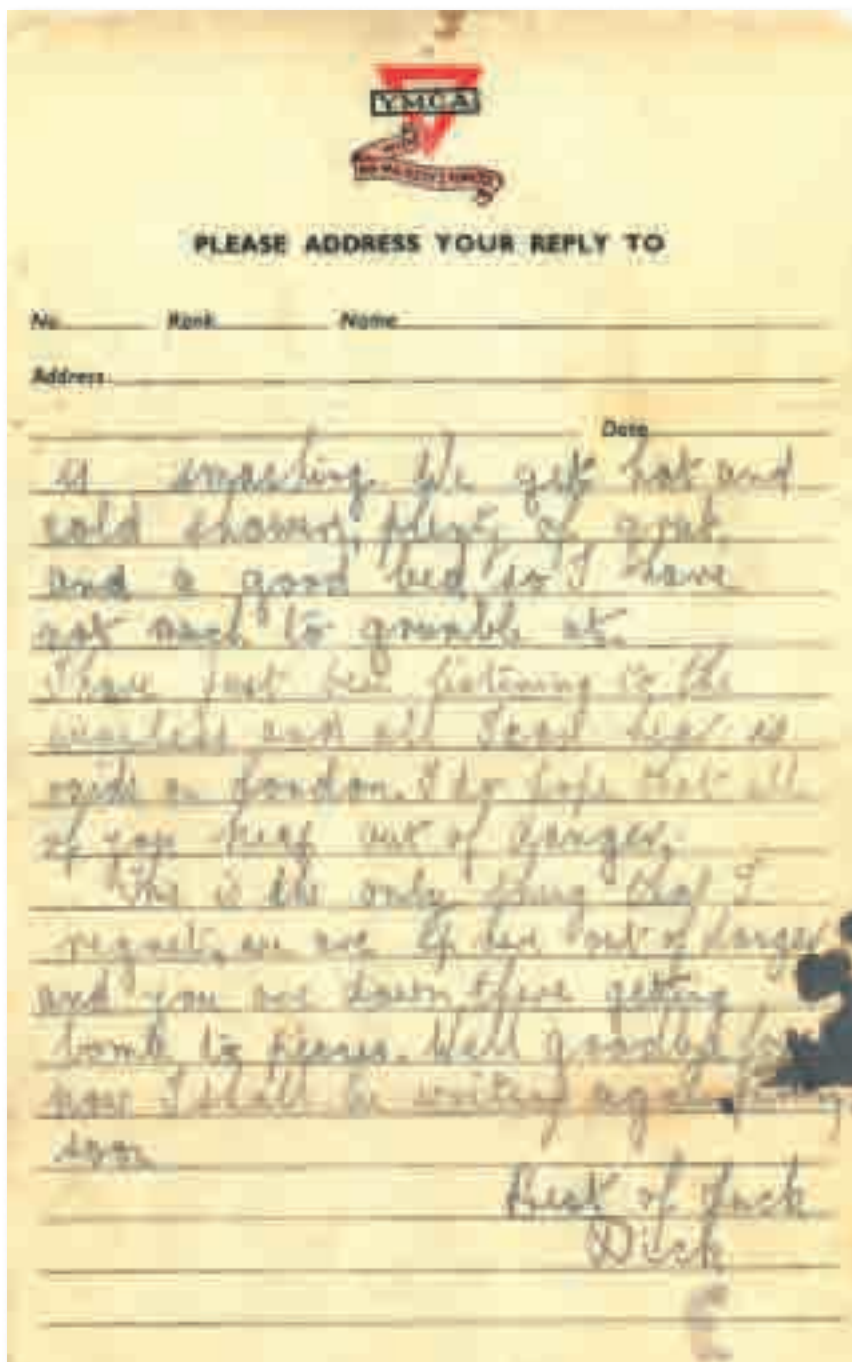 YMCA
PLEASE ADDRESS YOUR REPLY TO
No Rank Name
Address
Date
is smashing. We get hot and
cold showers, plenty of grub,
and a good bed, so I have
not much to grumble at.
I have just been listening to the
wireless and all I can hear is
raids on London. I do hope that all
of you keep out of danger.
This is the only thing that I
regret, we are up here out of danger
and you are down there getting
bomb to pieces. Well goodbye for
now I shall be writing again
soon
Best of luck
Dick